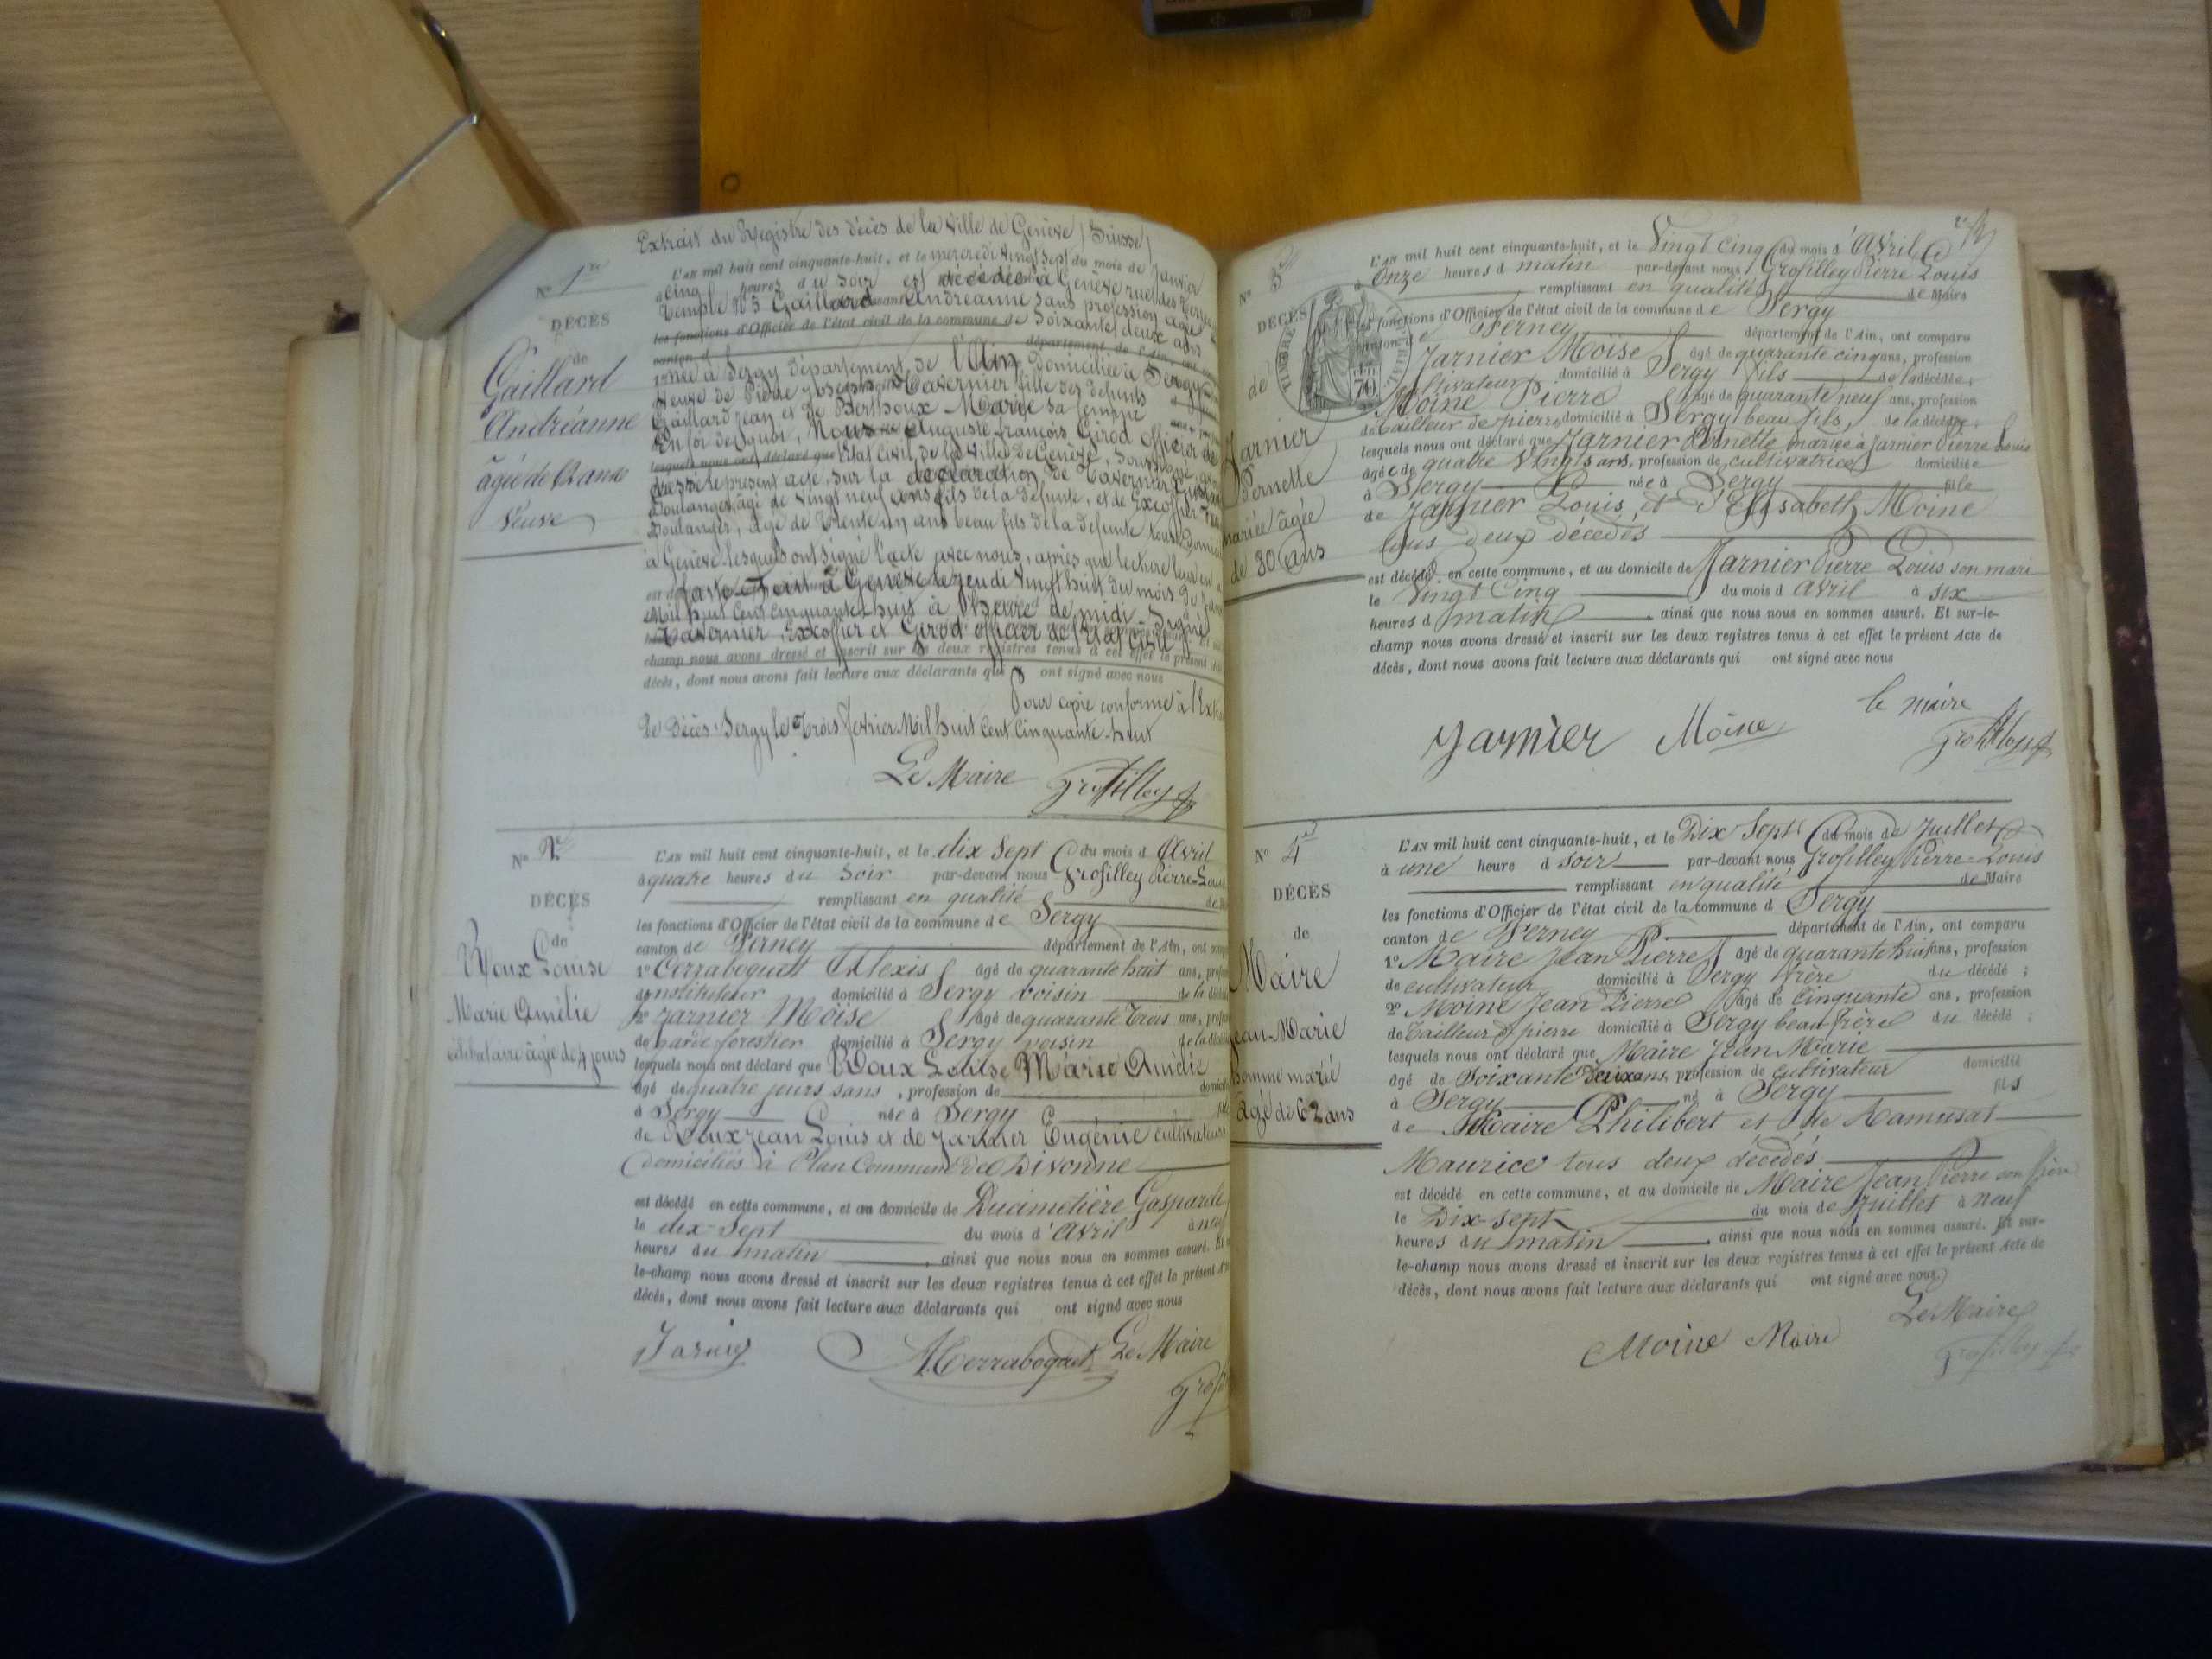 Extrait du Registre des décès de la Ville de Genève (Suisse)
N° 1er
DÉCÈS
de
Gaillard
Andréanne
âgée de 62 ans
Veuve
L'AN mil huit cent cinquante-huit, et le mercredi vingt sept du mois de Janvier
à cinq heures du soir est décédée à Genève rue des Terreaux
Temple N° 5 Gaillard Andréanne sans profession âgée
les fonctions d'Officier de l'état civil de la commune de Soixante deux ans
canton d département de l'Ain
1° née à Sergy département de l'Ain Domiciliée à Sergy
Veuve de Pierre Joseph Tavernier fille des defunts
Gaillard Jean et de Berthoux Marie sa femme
En foi de quoi, Nous Auguste François Girod Officier de
lesquels nous ont déclaré que l'Etat Civil de la Ville de Genève, soussigné, avons
dressé le présent acte, sur la déclaration de Tavernier
Boulanger, âgé de vingt neuf ans fils de la défunte, et de Excoffier
Boulanger, âgé de Trente un ans beau fils de la defunte tous Domiciliés
à Genève lesquels ont signé l'acte avec nous, après que lecture leur en a
fait à Genève le jeudi vingt huit du mois de Janvier
Mil huit Cent Cinquante huit à l'heure de midi. Signé
Tavernier, Excoffier et Girod officier de l'Etat Civil
champ nous avons dressé et inscrit sur les deux registres tenus à cet effet le présent Acte
décès, dont nous avons fait lecture aux déclarants qui ont signé avec nous
Pour copie conforme à l'Extrait
de Décès Sergy le Trois fevrier Mil huit Cent Cinquante-huit
Le Maire Grosfilley
N° 2
DÉCÈS
de
Roux Louise
Marie Amélie
célibataire âgée de 4 jours
L'AN mil huit cent cinquante-huit, et le dix Sept du mois d Avril
à quatre heures du Soir par-devant nous Grosfilley Pierre-Louis
remplissant en qualité de Maire
les fonctions d'Officier de l'état civil de la commune de Sergy
canton de Ferney département de l'Ain, ont comparu
1° Cerraboquet Alexis âgé de quarante huit ans, profession
d'instituteur domicilié à Sergy voisin de la décédée
2° Jarnier Moïse âgé de quarante trois ans, profession
de garde forestier domicilié à Sergy voisin de la décédée
lesquels nous ont déclaré que Roux Louise Marie Amélie
âgé de quatre jours sans, profession de domicilié
à Sergy née à Sergy fille
de Roux Jean Louis et de Jarnier Eugénie cultivateurs
domiciliés à Plan Commune de Divonne
est décédé en cette commune, et au domicile de Ducimetière Gasparde
le dix-Sept du mois d'Avril à neuf
heures du matin, ainsi que nous nous en sommes assuré. Et sur-
le-champ nous avons dressé et inscrit sur les deux registres tenus à cet effet le présent Acte
décès, dont nous avons fait lecture aux déclarants qui ont signé avec nous
Jarnier A. Cerraboquet Le Maire
Grosf
N° 3
DÉCÈS
de
Jarnier
Pernette
mariée âgée
de 80 ans
TIMBRE IMPÉRIAL
L'AN mil huit cent cinquante-huit, et le Vingt Cinq du mois d'Avril à
Onze heures d matin par-devant nous Grosfilley Pierre Louis
remplissant en qualité de Maire
les fonctions d'Officier de l'état civil de la commune de Sergy
canton de Ferney département de l'Ain, ont comparu
Jarnier Moïse âgé de quarante cinq ans, profession
cultivateur domicilié à Sergy fils de la décédée;
Moine Pierre âgé de quarante neuf ans, profession
de tailleur de pierre, domicilié à Sergy beau fils, de la décédée;
lesquels nous ont déclaré que Jarnier Pernette mariée à Jarnier Pierre Louis
âgée de quatre Vingts ans, profession de cultivatrice domiciliée
à Sergy née à Sergy fille
de Jarnier Louis, et d'Elisabeth Moine
tous deux décédés
est décédé en cette commune, et au domicile de Jarnier Pierre Louis son mari
le Vingt Cinq du mois d avril à six
heures d matin, ainsi que nous nous en sommes assuré. Et sur-le-
champ nous avons dressé et inscrit sur les deux registres tenus à cet effet le présent Acte de
décès, dont nous avons fait lecture aux déclarants qui ont signé avec nous
le maire
Jarnier Moine Grosfilley
N° 4
DÉCÈS
de
Maire
Jean-Marie
homme marié
âgé de 62 ans
L'AN mil huit cent cinquante-huit, et le Dix Sept du mois de Juillet
à une heure d soir par-devant nous Grosfilley Pierre-Louis
remplissant en qualité de Maire
les fonctions d'Officier de l'état civil de la commune d Sergy
canton de Ferney département de l'Ain, ont comparu
1° Maire Jean Pierre âgé de quarante huit ans, profession
de cultivateur domicilié à Sergy frère du décédé;
2° Moine Jean Pierre âgé de cinquante ans, profession
de Tailleur de pierre domicilié à Sergy beau-frère du décédé;
lesquels nous ont déclaré que Maire Jean Marie
âgé de Soixante Deux ans, profession de cultivateur domicilié
à Sergy né à Sergy fils
de Maire Philibert et de Ramusat
Maurice tous deux décédés
est décédé en cette commune, et au domicile de Maire Jean Pierre son frère
le Dix-sept du mois de Juillet à neuf
heures du matin, ainsi que nous nous en sommes assuré. Et sur-
le-champ nous avons dressé et inscrit sur les deux registres tenus à cet effet le présent Acte de
décès, dont nous avons fait lecture aux déclarants qui ont signé avec nous.
Le Maire
Moine Maire Grosfilley